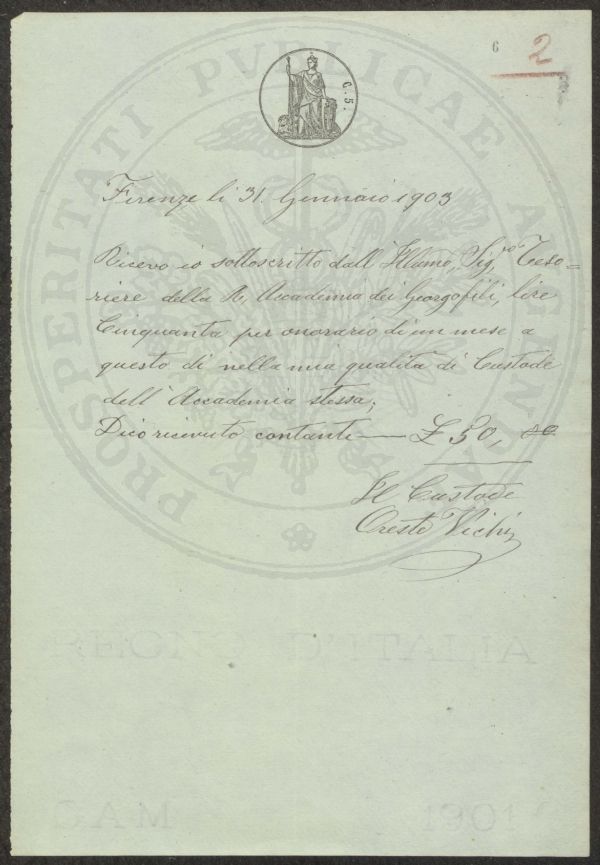 6 2
C. 5.
PROSPERITATI PVBLICAE AVGENDAE
Firenze li 31. Gennaio 1903
Ricevo io sottoscritto dall' Illumo, Sig,re Teso=
riere della R, Accademia dei Georgofili, lire
Cinquanta per onorario di un mese a
questo di nella mia qualità di Custode
dell' Accademia stessa;
Dico ricevuto contanti — £ 50, 00
Il Custode
Oreste Vichi
REGNO D'ITALIA
1901